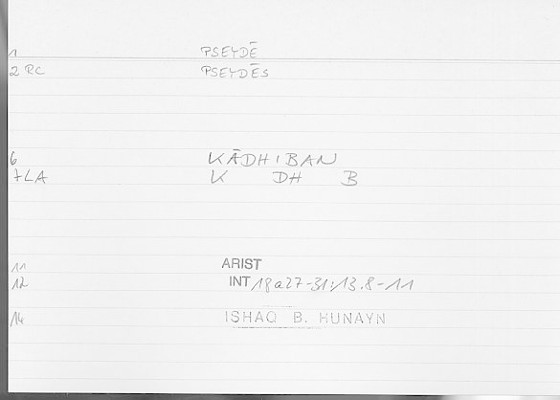 1 PSEYDĒ
2 RC PSEYDĒS
6 KĀDHIBAN
7 LA K DH B
11 ARIST
12 INT 18a27-31:13.8-11
14 ISHAQ B. HUNAYN